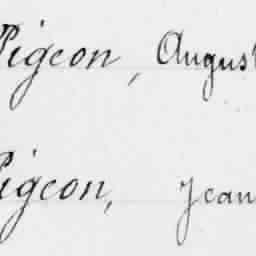 Pigeon, August
Pigeon, Jean